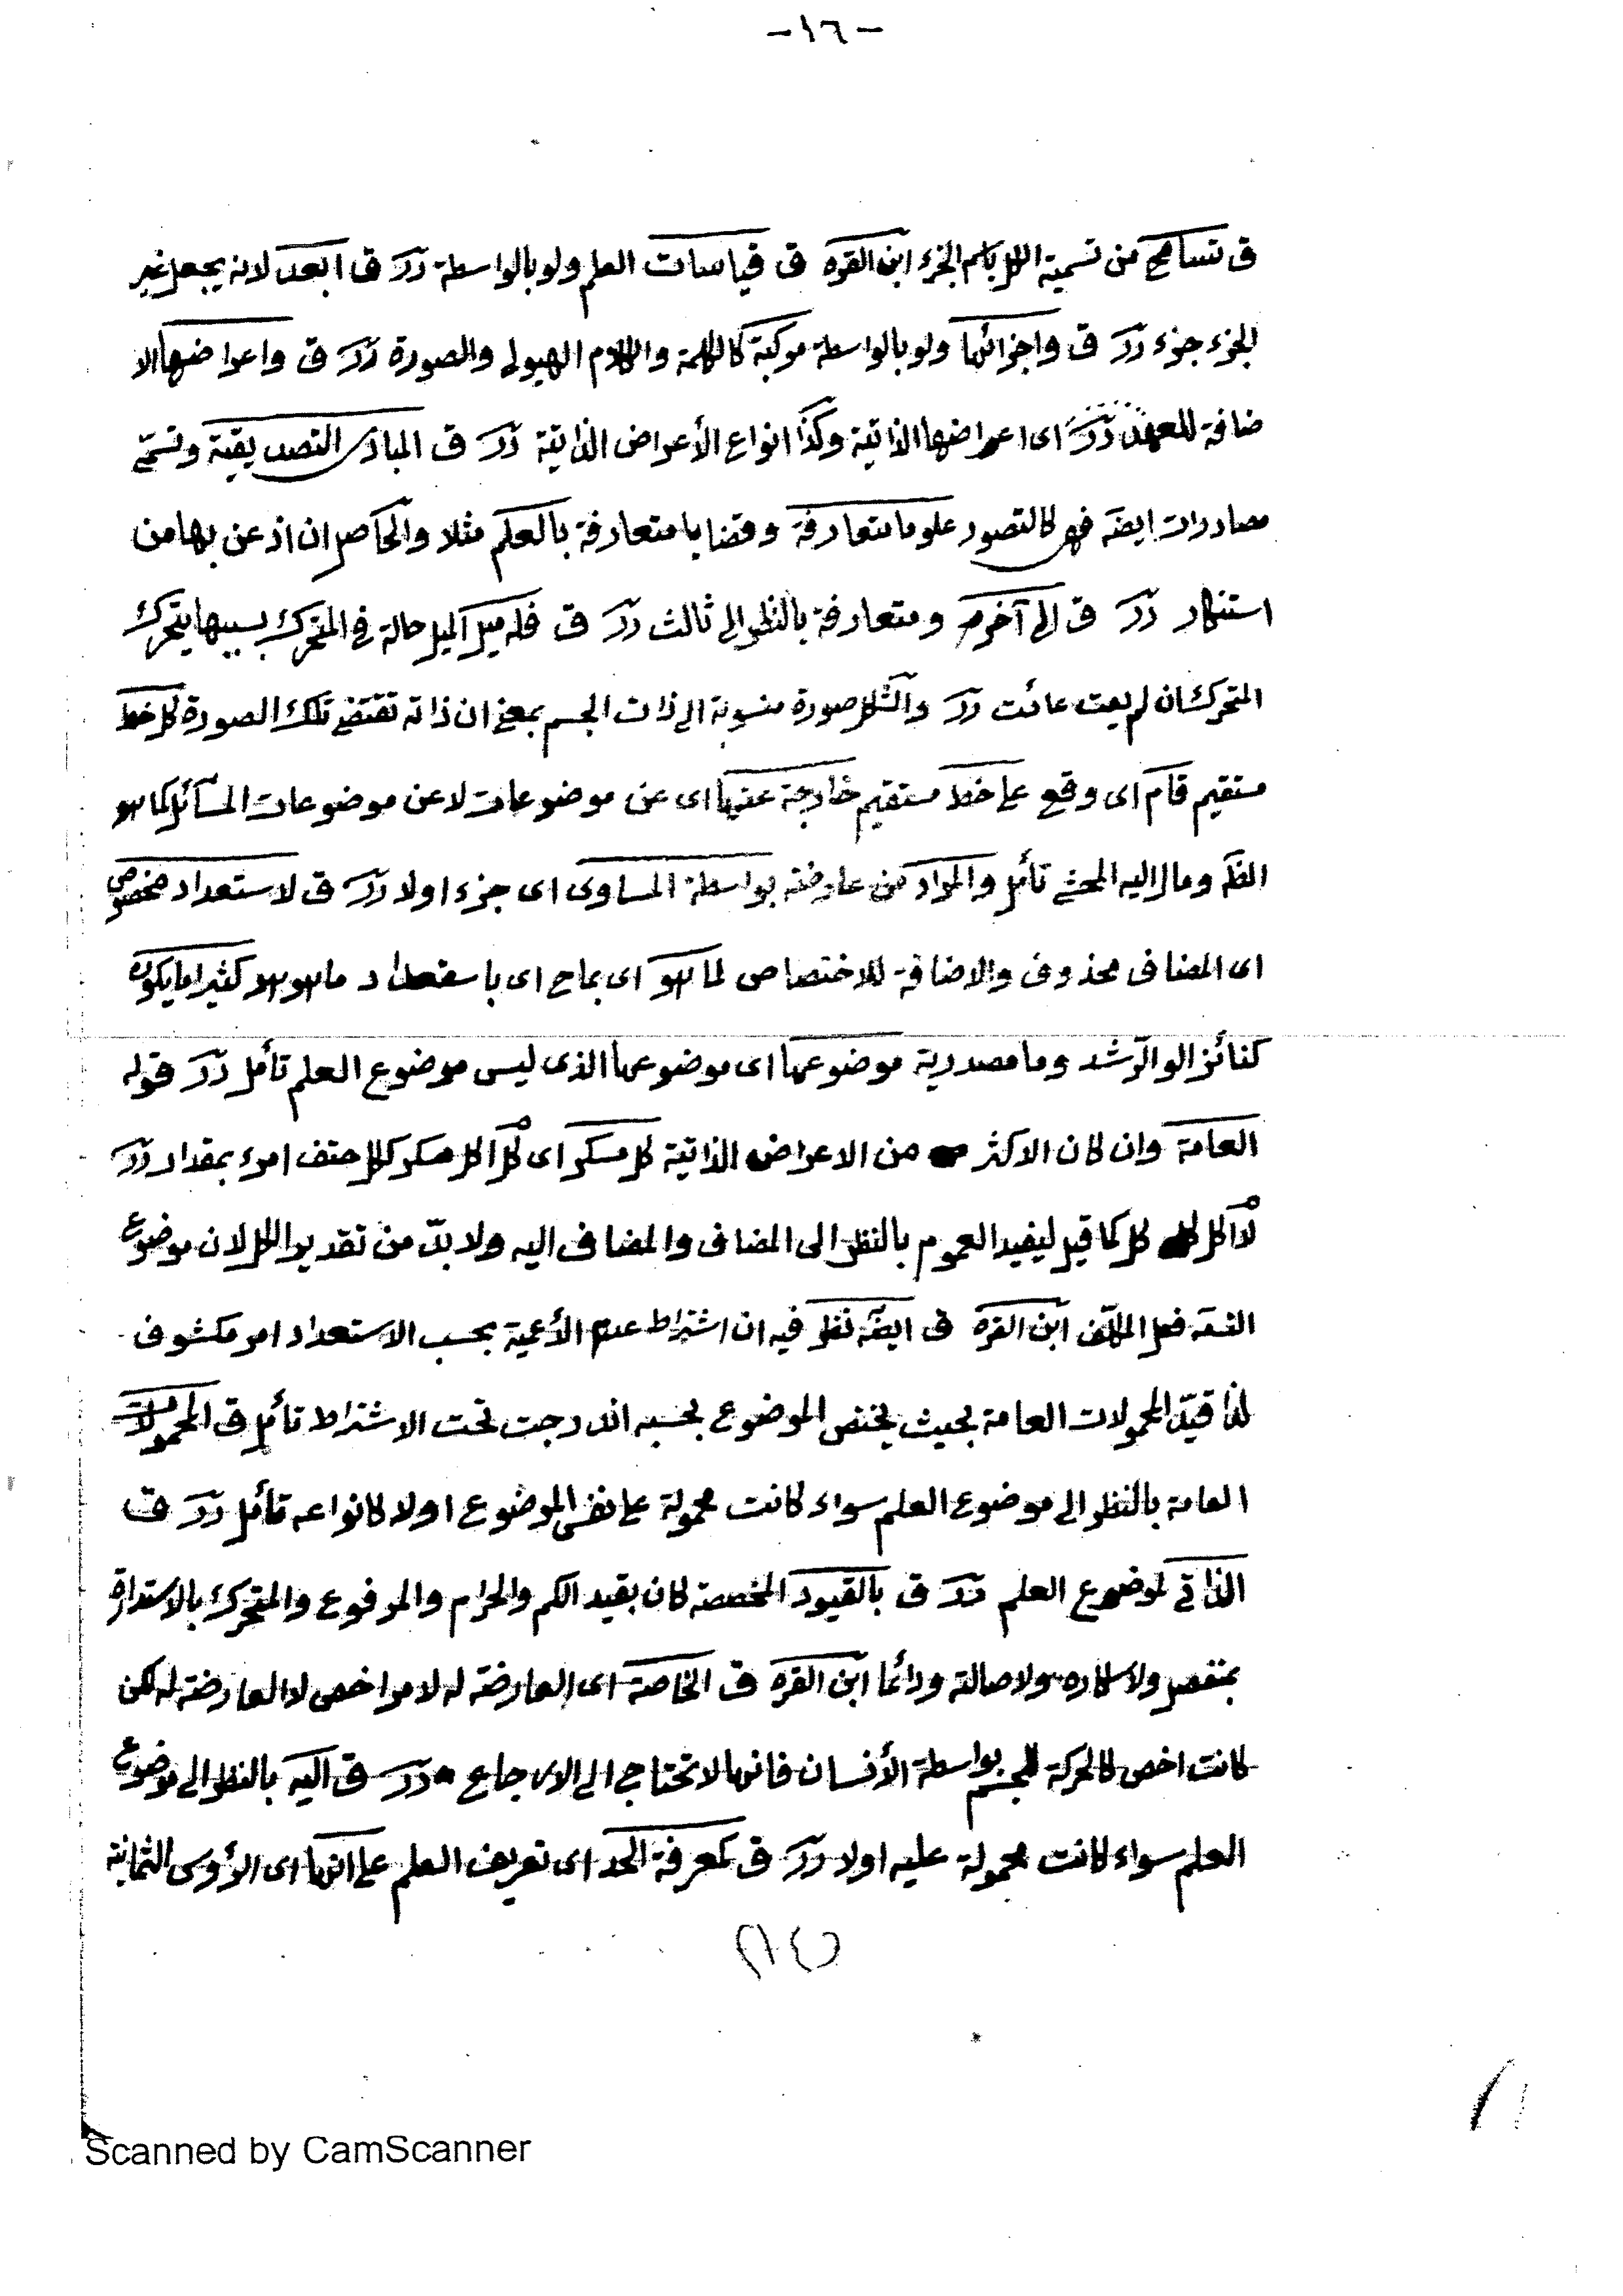 -١٦-
ق تسامح من تسمية الكل باسم الجزء ابن القره ق قياسات العلم ولو بالواسطة زدَ ق ابعد لانه يجعل غير
الجزء جزء زدَ ق واجزائها ولو بالواسطة مركبة كالكلمة والكلام الهيولى والصورة زدَ ق واعراضها الا
ضافة للعهد زدَ اى اعراضها الذاتية وكذا انواع الأعراض الذاتية زدَ ق المبادى التصديقية وتسمّى
مصادرات ايضه فهى كالتصور علوما متعارفة وقضايا متعارفة بالعلم مثلا والحاصل ان اذعن بها من
استنكار زدَ ق الى آخر ومتعارفة بالنظر الى ثالث زدَ ق فله ميل الميل حالة فى المتحرك بسببها يتحرك
المتحرك ان لم يعت عائت زدَ والشكل صورة منسوبة الى ذات الجسم بمعنى ان ذاته تقتضى تلك الصورة كل خط
مستقيم قام اى وقع على خط مستقيم خارجة عنها اى عن موضوعات لا عن موضوعات المسائل كما هو
الظه ومال اليه المحشى تأمل والمراد من عارضة بواسطة المساوى اى جزء اولا زدَ ق لاستعداد مخصوص
اى المضاف محذوف والاضافة للاختصاص لما هو اى بماح اى باستعداد ما هو هو كثيرا ما يكون
كنائز الو الرّشد وما مصدرية موضوعها اى موضوعها الذى ليس موضوع العلم تأمل زدَ قوله
العامة وان كان الاكثر من الاعراض الذاتية كل مسكر اى كل اكل مسكر ككل حتف امرء بمقدار زدَ
لا اكل كل كما قيل ليفيد العموم بالنظر الى المضاف والمضاف اليه ولا بدّ من تقدير الكل لان موضوع
الفقه فعل المكلّف ابن القره ق ايضه نظر فيه ان اشتراط عدم الأعمية بحسب الاستعداد امر مكشوف
لذا قيّد المحمولات العامة بحيث يختص الموضوع بحسبه اندرجت تحت الاشتراط تأمل ق المحمولات
العامة بالنظر الى موضوع العلم سواء كانت محمولة على نفس الموضوع او لا كانواعه تأمل زدَ ق
الذاتى لموضوع العلم زدَ ق بالقيود المخصصة كان بقيد الكم والحرام والمرفوع والمتحرك بالاستدارة
بمنفصل ولاسكاره ولاصالة ودائما ابن القره ق الخاصة اى العارضة له لامر اخص لا العارضة له لكن
كانت اخص كالحركة للجسم بواسطة الأنسان فانها لا تحتاج الى الارجاع زدَ ق اليه بالنظر الى موضوع
العلم سواء كانت محمولة عليه اولا زدَ ق كمعرفة الحد اى تعريف العلم على انها اى الرؤوس الثمانية
Scanned by CamScanner